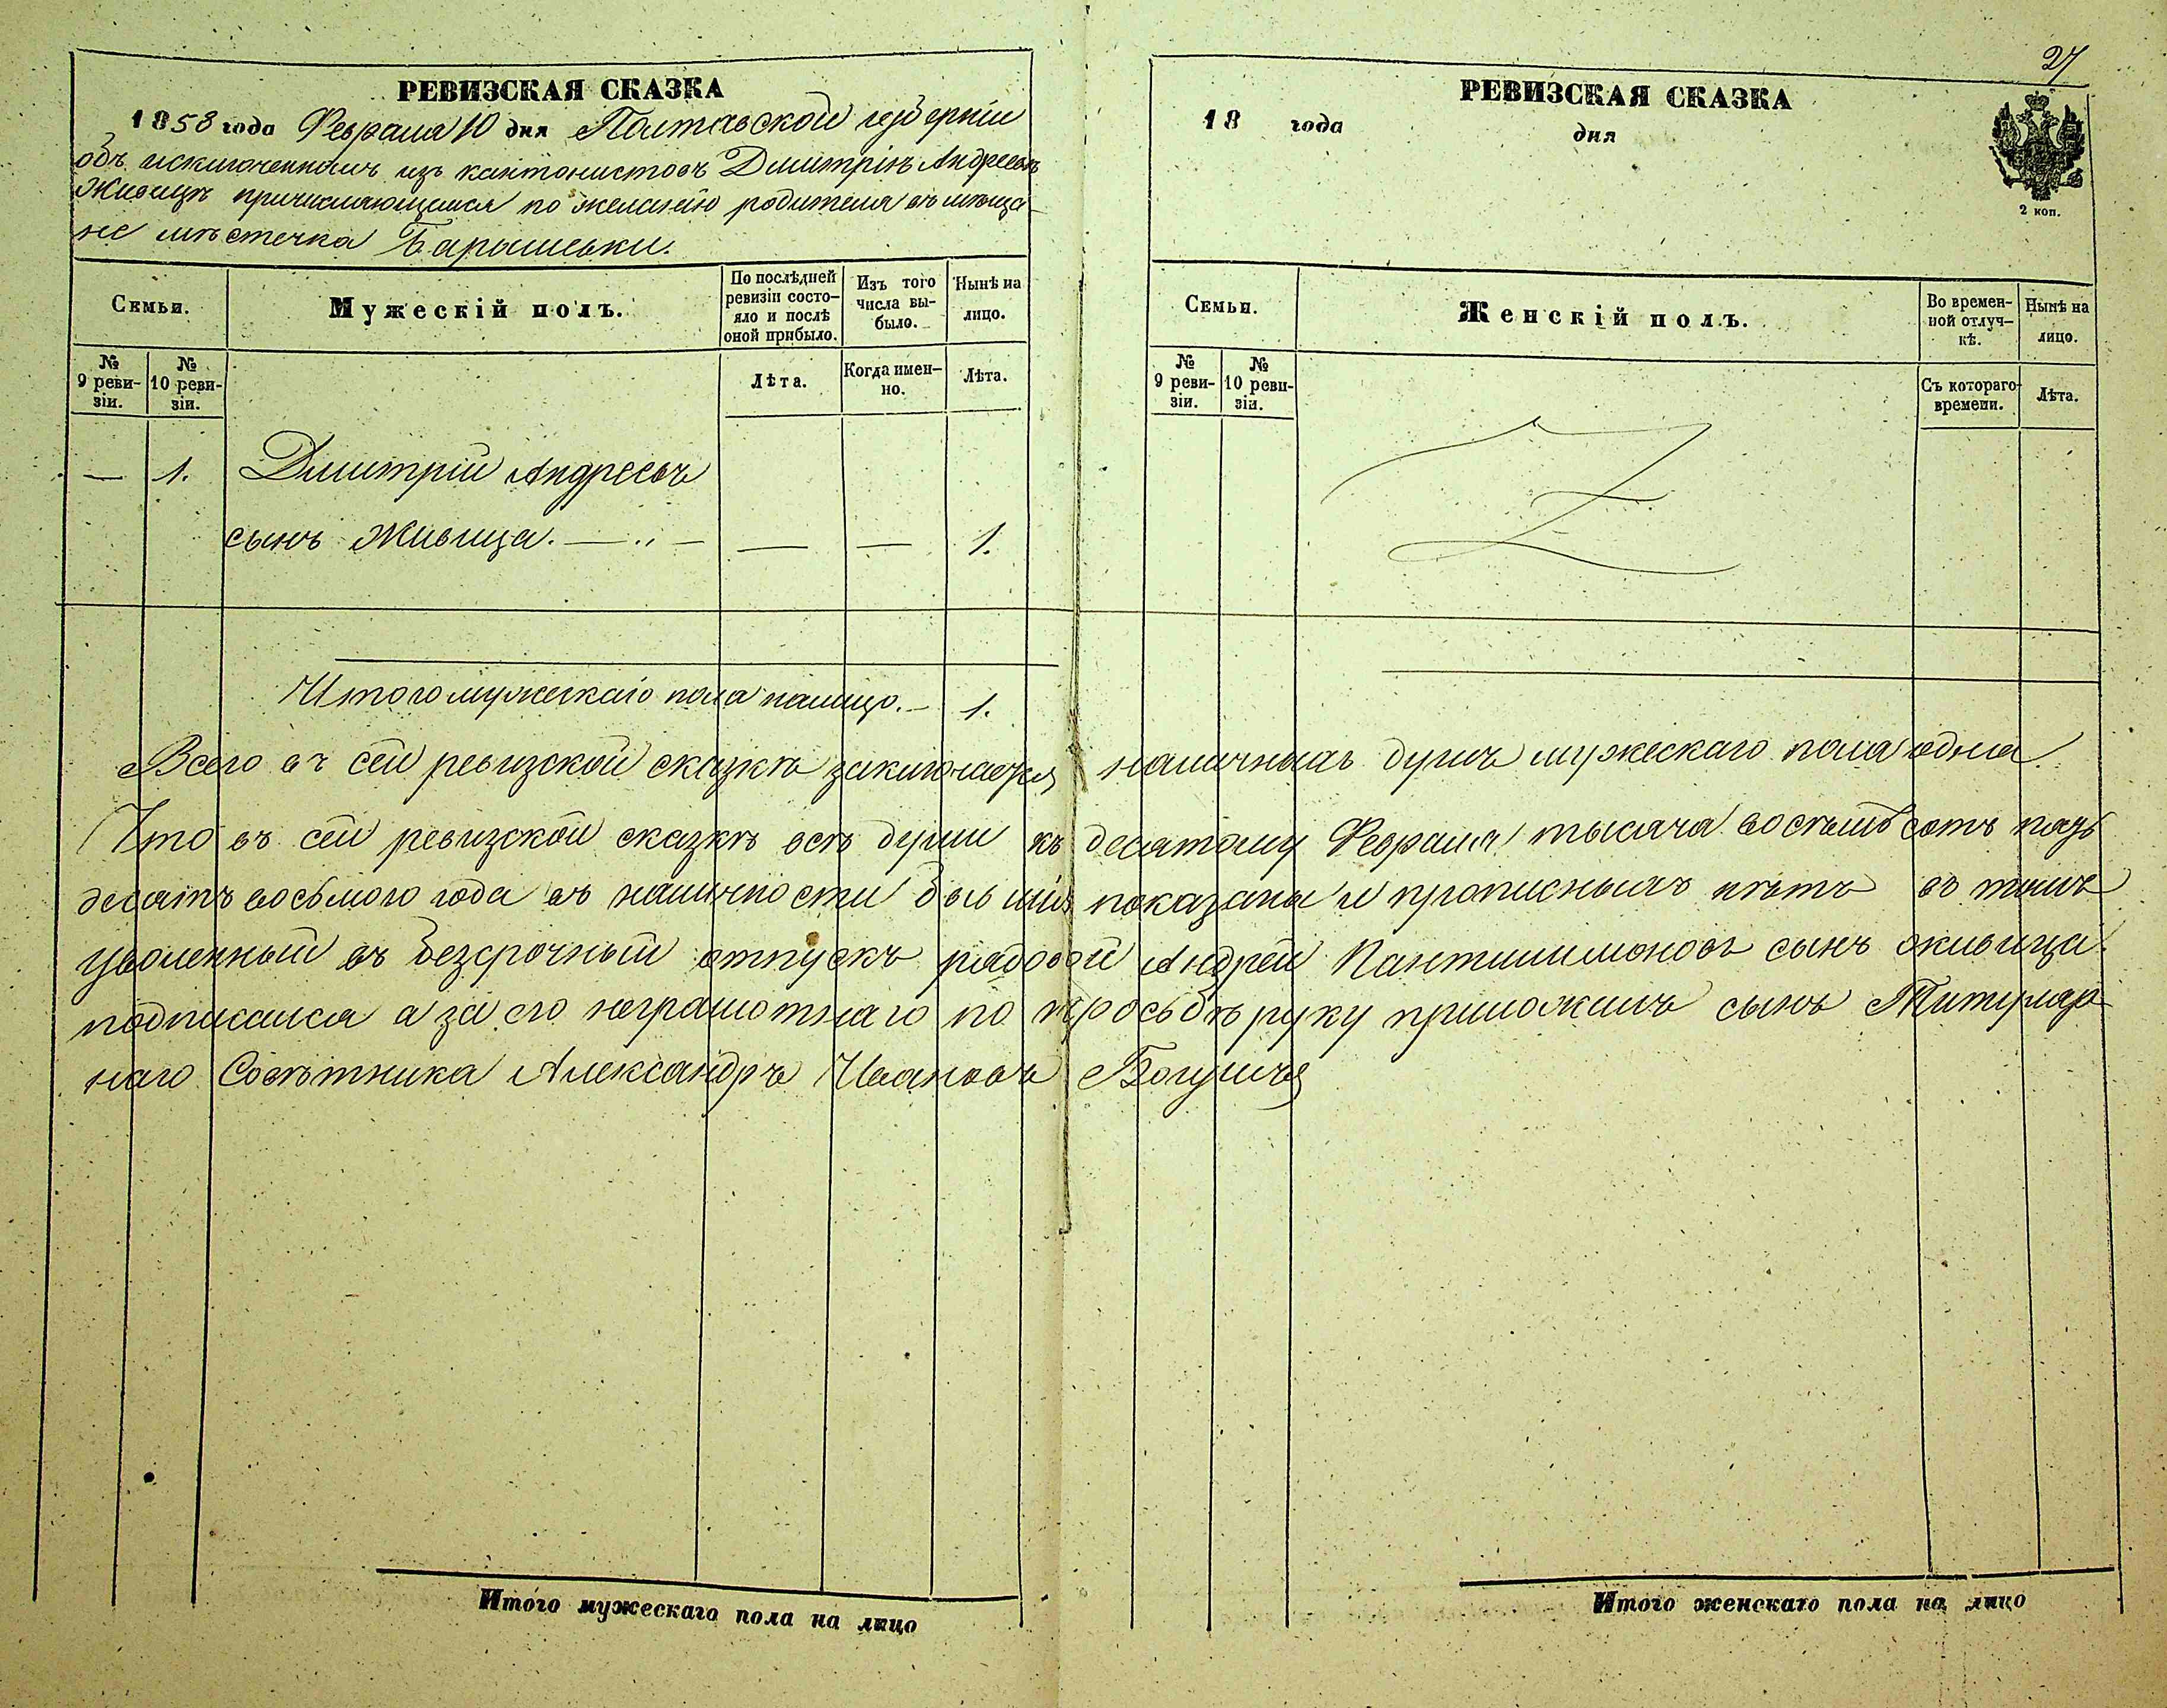 27
РЕВИЗСКАЯ СКАЗКА
1858 года Февраля 10 дня Полтавской губерніи
объ исключенномъ изъ кантонистовъ Димитріѣ Андреевѣ
Живицѣ причисляющемся по желанію родителя въ мѣща-
не мѣстечка Барышевки.
Семьи.
Мужескій полъ.
По послѣдней ревизіи состо-
яло и послѣ оной прибыло.
Изъ того числа вы-
было.
Нынѣ на лицо.
№ 9 реви-
зіи.
№ 10 реви-
зіи.
Лѣта.
Когда имен-
но.
Лѣта.
— 1. Димитрій Андреевъ
сынъ Живица. — „ — — — 1.
Итого мужескаго пола налицо. — 1.
РЕВИЗСКАЯ СКАЗКА
18 года дня
2 коп.
Семьи.
Женскій полъ.
Во времен-
ной отлуч-
кѣ.
Нынѣ на лицо.
№ 9 реви-
зіи.
№ 10 реви-
зіи.
Съ котораго времени.
Лѣта.
Всего въ сей ревизской сказкѣ заключается наличныхъ душъ мужескаго пола одна.
Что въ сей ревизской сказкѣ всѣ души къ десятому Февраля тысяча восѣмьсотъ пядь
десятъ восьмого года въ наличности бывшія показаны и прописныхъ нѣтъ въ томъ
уволенный въ безсрочный отпускъ рядовой Андрей Пантилимоновъ сынъ Живица.
подписался а за его неграмотнаго по просьбѣ руку приложилъ сынъ Титуляр-
наго Совѣтника Александръ Ивановъ
Итого мужескаго пола на лицо
Итого женскаго пола на лицо